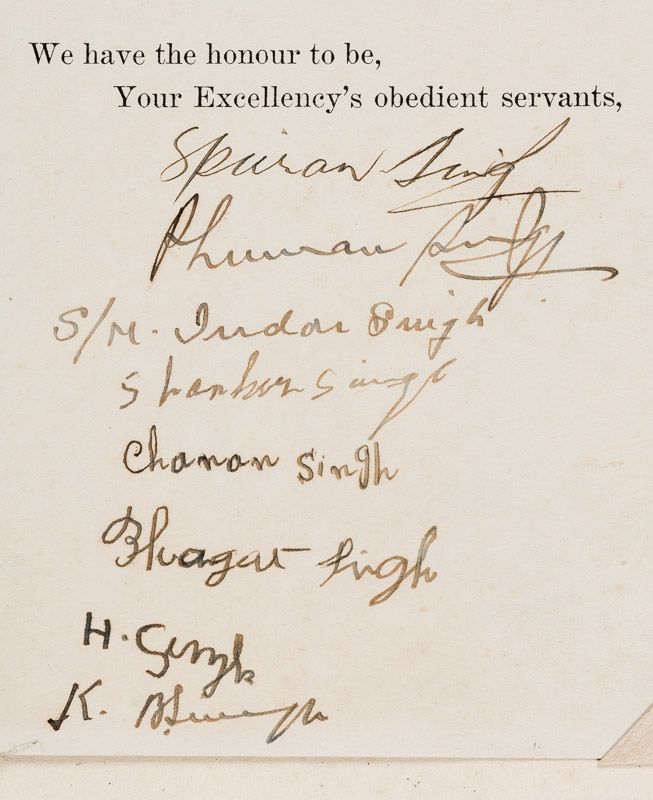 We have the honour to be,
Your Excellency's obedient servants,
Spuran Singh
Phuman Singh
S/M. Indar Singh
Shanker Singh
Chanan Singh
Bhagat Singh
H. Singh
K.